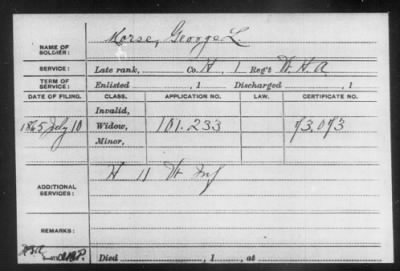 NAME OF SOLDIER: Morse, George L.
SERVICE: Late rank, Co. H, 1 Reg't Vt. H. A
TERM OF SERVICE: Enlisted , 1 Discharged , 1
DATE OF FILING. CLASS. APPLICATION NO. LAW. CERTIFICATE NO.
Invalid,
1865 July 10 Widow, 101.233 73.073
Minor,
ADDITIONAL SERVICES: H 11 Vt Inf
REMARKS:
Died , 1 , at